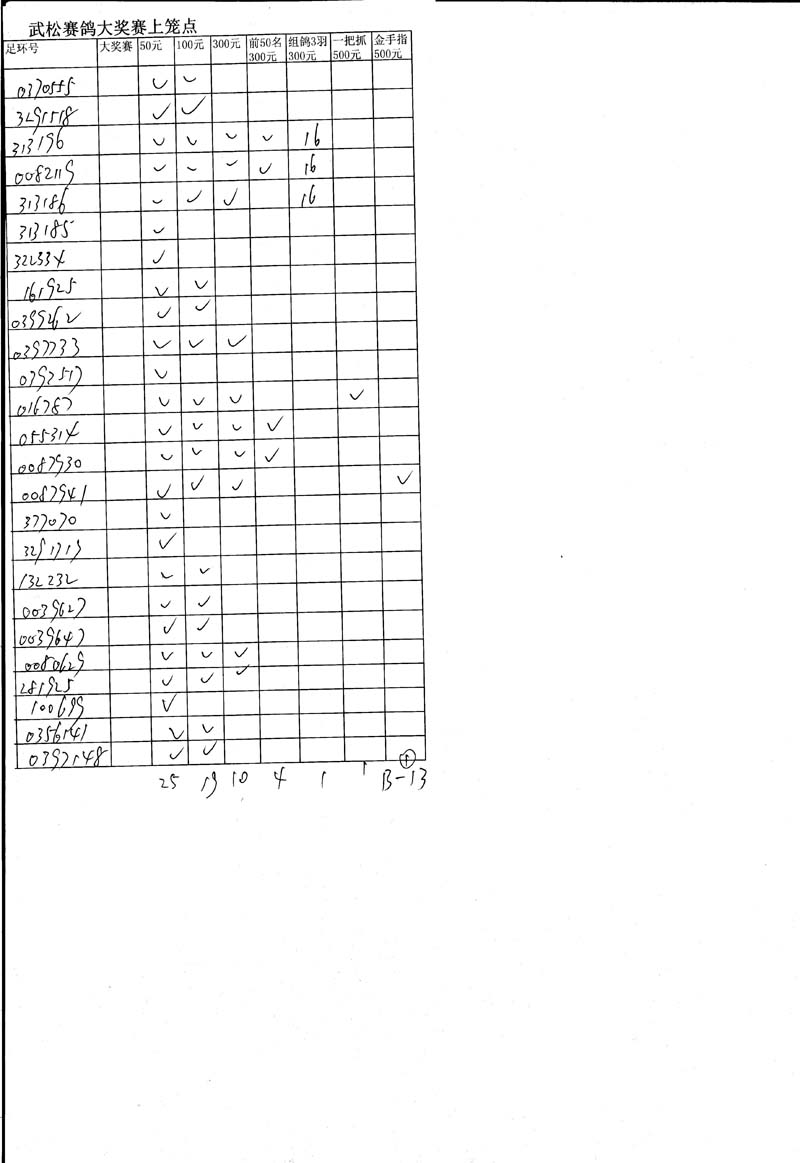 武松赛鸽大奖赛上笼点
足环号 大奖赛 50元 100元 300元 前50名300元 组鸽3羽300元 一把抓500元 金手指500元
0370555 ✓ ✓
3291518 ✓ ✓
313196 ✓ ✓ ✓ ✓ 16
0082119 ✓ ✓ ✓ ✓ 16
313186 ✓ ✓ ✓ 16
313185 ✓
322334 ✓
161925 ✓ ✓
0399262 ✓ ✓
0397733 ✓ ✓ ✓
0392517 ✓
016787 ✓ ✓ ✓ ✓
055314 ✓ ✓ ✓ ✓
0087930 ✓ ✓ ✓ ✓
0087941 ✓ ✓ ✓ ✓
377070 ✓
3291719 ✓
132232 ✓ ✓
0039627 ✓ ✓
0039647 ✓ ✓
0080629 ✓ ✓ ✓
281925 ✓ ✓ ✓
100699 ✓
0356141 ✓ ✓
0392148 ✓ ✓
25 19 10 4 1 1 ①
B-13